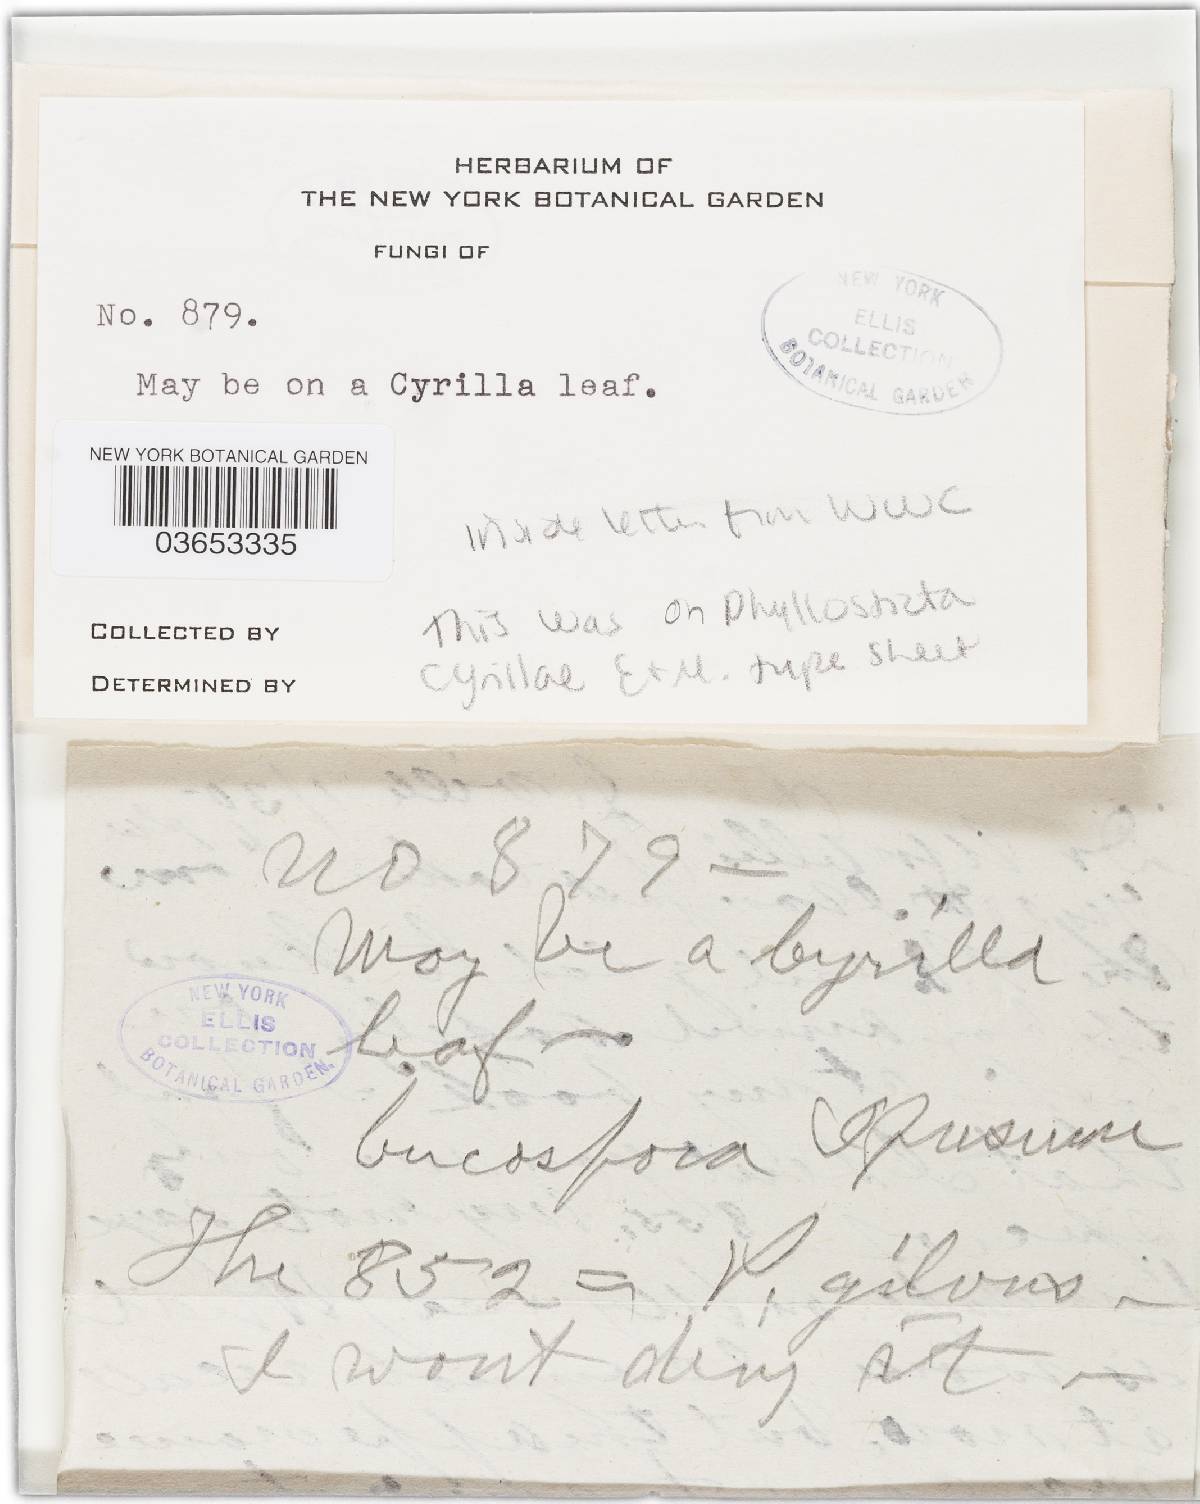 HERBARIUM OF
THE NEW YORK BOTANICAL GARDEN
FUNGI OF
No. 879.
NEW YORK
ELLIS
COLLECTION
BOTANICAL GARDEN
May be on a Cyrilla leaf.
NEW YORK BOTANICAL GARDEN
03653335
Inside letter from WWC
This was on Phyllosticta
Cyrillae E+M. type sheet
COLLECTED BY
DETERMINED BY
No 879 —
May be a Cyrilla
leaf —
NEW YORK
ELLIS
COLLECTION
BOTANICAL GARDEN.
The 852 = P. gilvus —
I wont deny it —